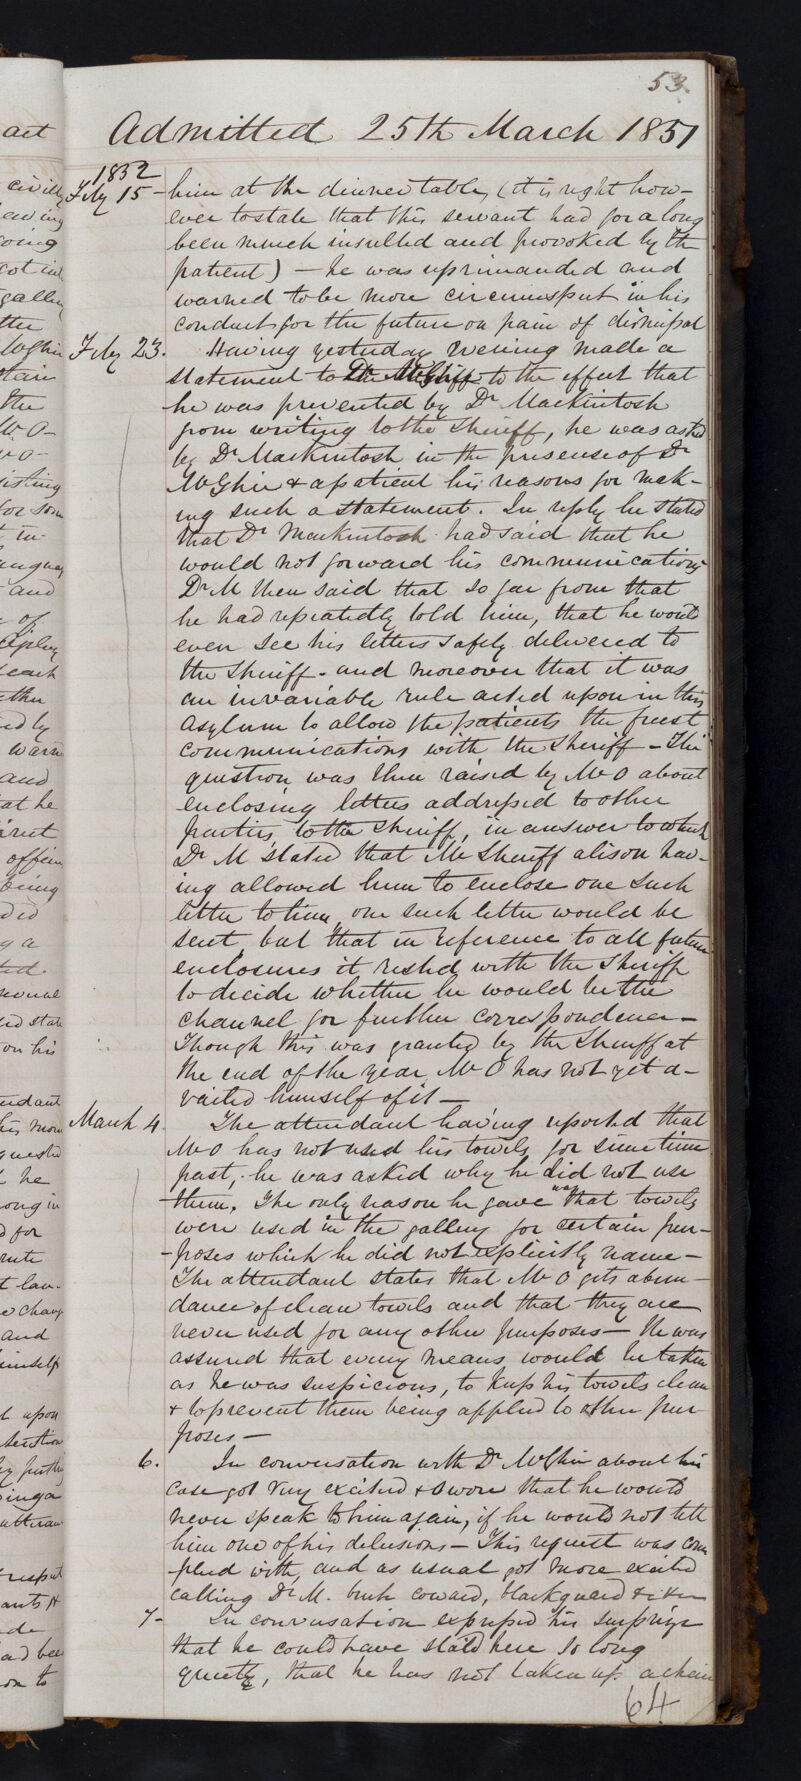 53.
Admitted 25th March 1851
1852
Feby 15 - him at the dinner table, (it is right how-
ever to state that this servant had for a long
been much insulted and provoked by the
patient) - he was reprimanded and
warned to be more circumspect in his
conduct for the future on pain of dismissal
Feby 23. Having yesterday evening made a
statement to to the effect that
he was prevented by Dr Mackintosh
from writing to the Sheriff, he was asked
by Dr Mackintosh in the presence of Dr
McGhie & a patient his reasons for mak-
ing such a statement. In reply he stated
that Dr Mackintosh had said that he
would not forward his communications
Dr M then said that so far from that
he had repeatedly told him, that he would
even see his letters safely delivered to
the Sheriff - and moreover that it was
an invariable rule acted upon in this
Asylum to allow the patients the freest
communications with the Sheriff - The
question was then raised by Mr O about
enclosing letters addressed to other
parties to the Sheriff, in answer to which
Dr M stated that Mr Sheriff Alison hav-
ing allowed him to enclose one such
letter to him, one such letter would be
sent, but that in reference to all future
enclosures it rested with the Sheriff
to decide whether he would be the
channel for further correspondence -
Though this was granted by the Sheriff at
the end of the year Mr O has not yet a-
vailed himself of it -
March 4. The attendant having reported that
Mr O has not used his towels for sometime
past, he was asked why he did not use
them. The only reason he gave was that towels
were used in the gallery for certain pur-
-poses which he did not explicitly name -
The attendant states that Mr O gets abun-
dance of clean towels and that they are
never used for any other purposes - He was
assured that every means would be taken
as he was suspicious, to keep his towels clean
& to prevent them being applied to other pur
poses -
6. In conversation with Dr McGhie about his
case got very excited & swore that he would
never speak to him again, if he would not tell
him one of his delusions - This request was com
plied with, and as usual got more excited
calling Dr M. coward, blackguard &c &c
7- In conversation expressed his surprise
that he could have staid here so long
quietly, that he has not taken up a chair
64